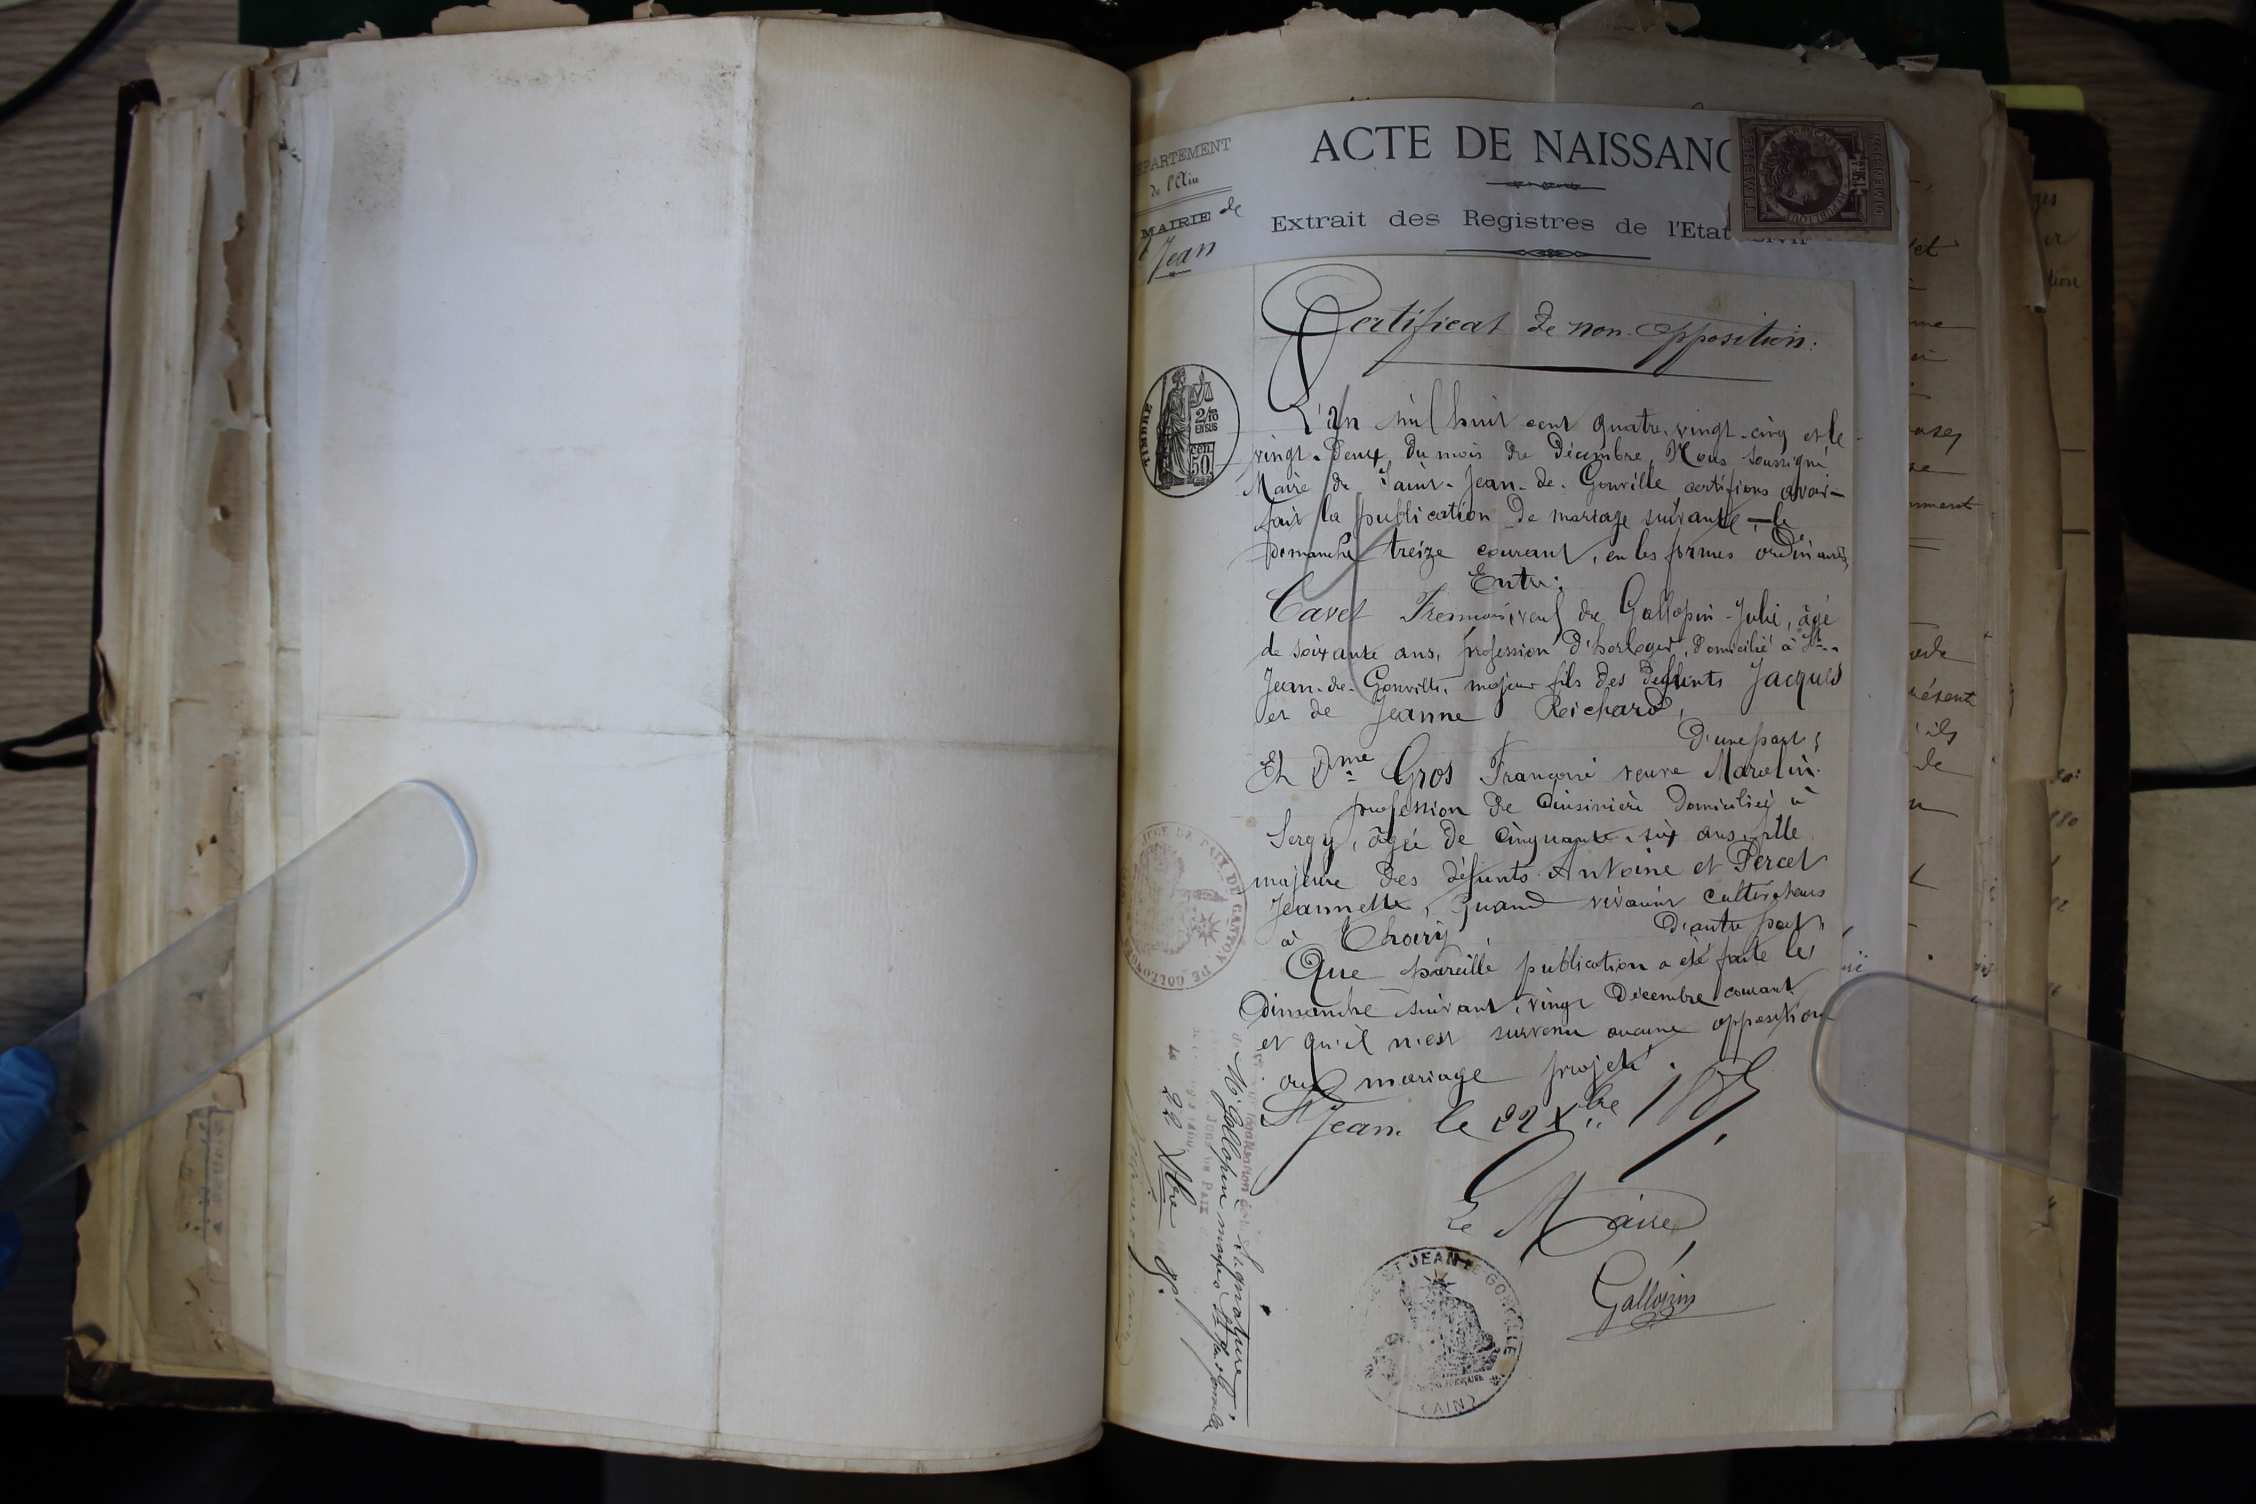 DÉPARTEMENT
de l'Ain
MAIRIE de
Jean
ACTE DE NAISSANC
Extrait des Registres de l'Etat Civil
TIMBRE
DIMENSION
Certificat de non-opposition.
TIMBRE
2/10
EN SUS
50
L'an mil huit cent quatre-vingt-cinq et le
vingt-deux du mois de Décembre, Nous soussigné
Maire de Saint-Jean-de-Gonville certifions avoir
fait la publication de mariage suivante, le
Domanche treize courant, en les formes ordinaires,
Entre:
Cavet veuf de Gallopin Julie, âgé
de soixante ans, profession d'horloger, domicilié à St-
Jean-de-Gonville, majeur fils des deffunts Jacques
et de Jeanne Reichard,
D'une part;
Et Dme Gros Françoise veuve Marcelin
profession de Cuisinière domiciliée à
Sergy, âgée de cinquante-six ans, fille
majeure des défunts Antoine et Percet
Jeannette, quand vivaient cultivateurs
à Thoiry, D'autre part,
Que pareille publication a été faite le
Dimanche suivant, vingt Décembre courant
et qu'il n'est survenu aucune opposition
au mariage projeté.
St Jean le 22 Xbre 1885
Le Maire,
Gallopin
ST JEAN DE GONVILLE
(AIN)
JUGE DE PAIX DU CANTON DE COLLONGES
Signature
de Mr Gallopin maire à St Jean de Gonville
Le 22 Xbre 85